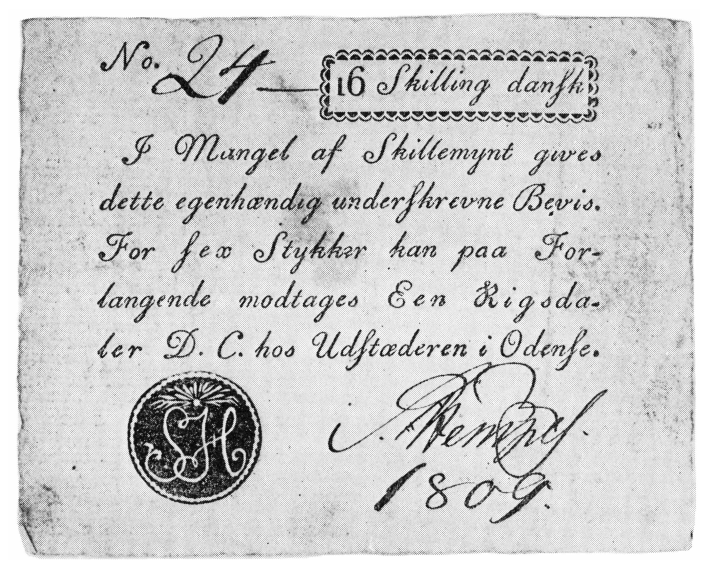 No. 24 16 Skilling danſk
I Mangel af Skillemynt gives
dette egenhændig underſkrevne Bevis.
For ſex Stykker kan paa For-
langende modtages Een Rigsda-
ler D. C. hos Udſtæderen i Odenſe.
SH
S. Hempel.
1809.